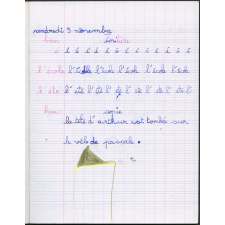 vendredi novembre
bien écriture
é é é é é é é é é é
l'école l'école l'école l'école l'école l'école
l'été l'été l'été l'été l'été l'été l'été
bien copie
la tête d'arthur est tombé sur
le vélo de pascale.